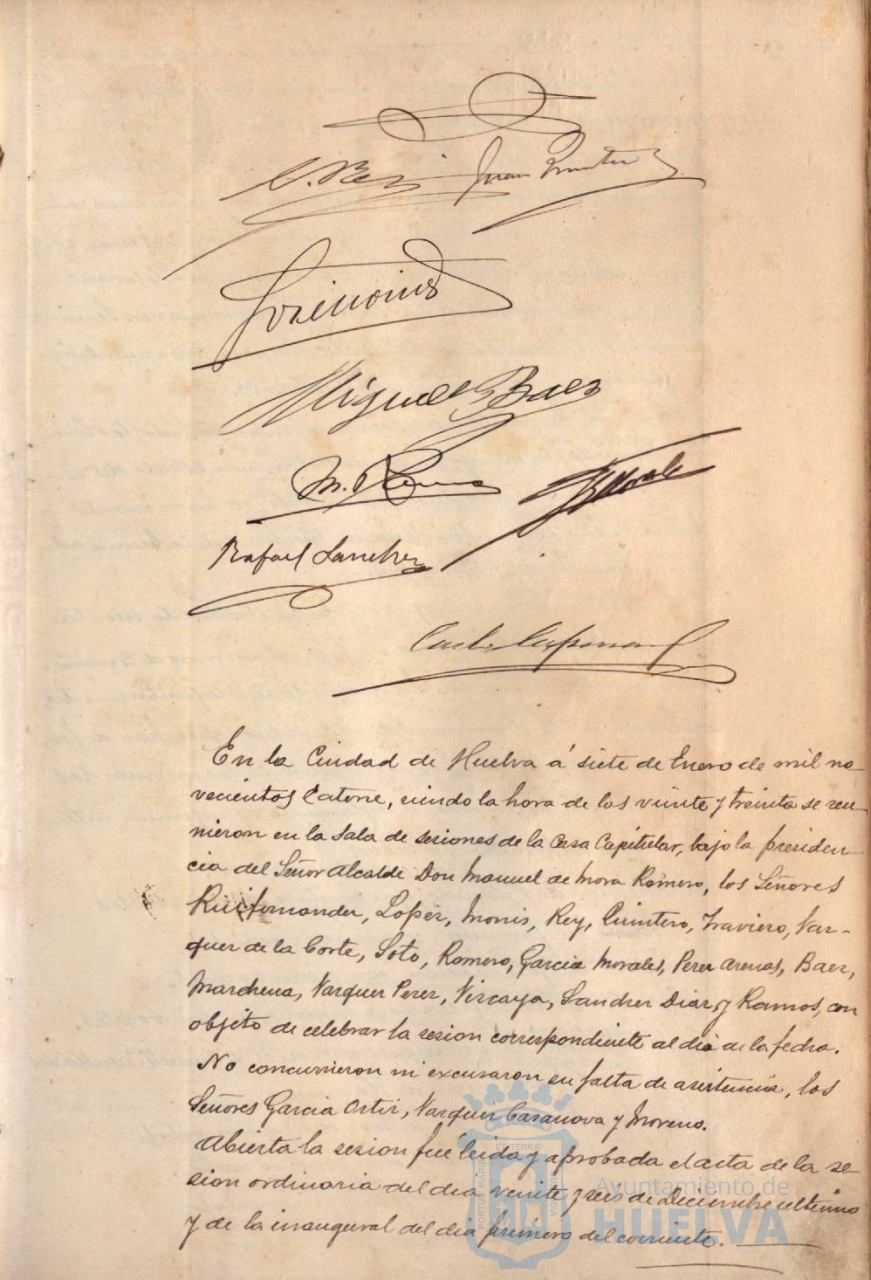 Juan Quintero
Miguel Baez
Rafael Sanchez
En la Ciudad de Huelva á siete de Enero de mil no-
vecientos Catorce, siendo la hora de las veinte y treinta se reu-
nieron en la Sala de sesiones de la Casa Capitular, bajo la presiden-
cia del Señor Alcalde Don Manuel de Mora Romero, los Señores
Ruifernandez, Lopez, Monis, Rey, Quintero, Traviero, Vaz-
quez de la Corte, Soto, Romero, Garcia Morales, Perez Arenas, Baez,
Marchena, Vazquez Perez, Vizcaya, Sanchez Diaz, y Ramos, con
objeto de celebrar la sesion correspondiente al dia de la fecha.
No concurrieron ni excusaron su falta de asistencia, los
Señores Garcia Ortiz, Vazquez Casanova y Moreno.
Abierta la sesion fué leida y aprobada el acta de la se-
sion ordinaria del dia veinte y seis de Diciembre ultimo
y de la inaugural del dia primero del corriente.
Ayuntamiento de
HUELVA